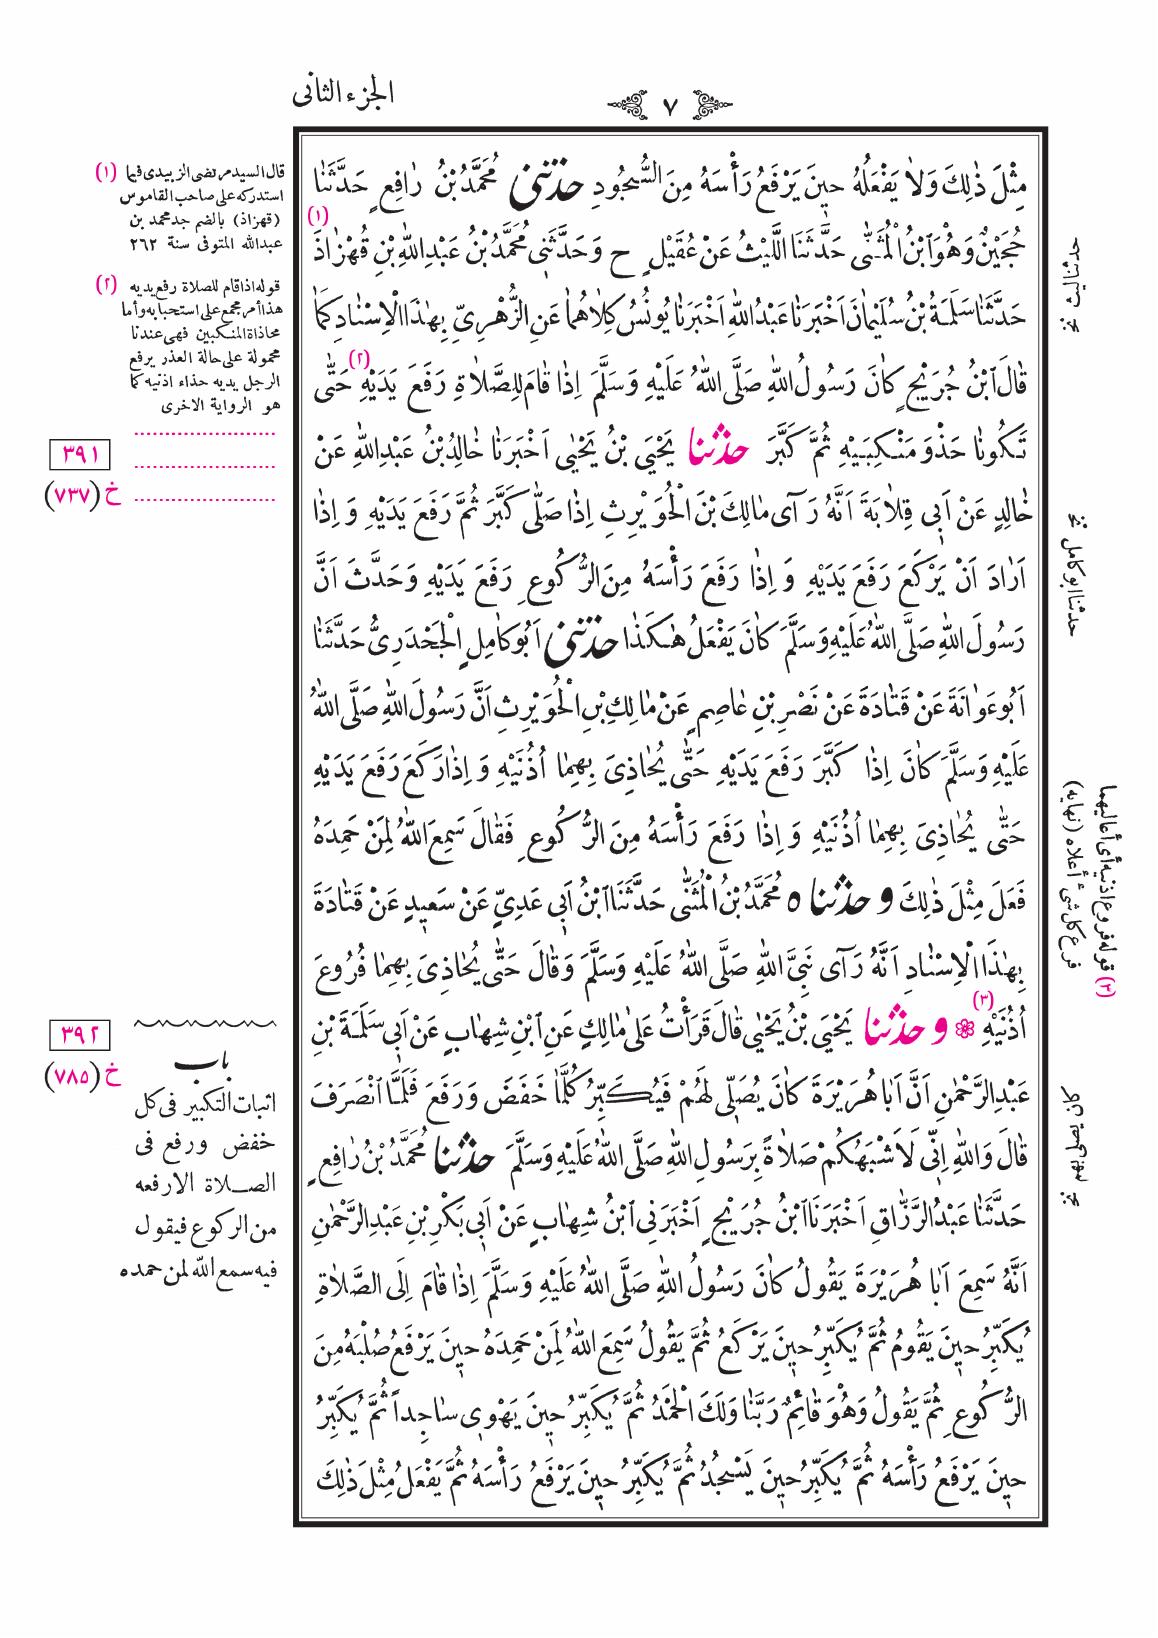 الجزء الثانى
٧
مِثْلَ ذٰلِكَ وَلاٰ يَفْعَلُهُ حينَ يَرْفَعُ رَأْسَهُ مِنَ السُّجُودِ حدثنى مُحَمَّدُ بْنُ رٰافِعٍ حَدَّثَنٰا
حُجَيْنٌ وَهُوَ ابْنُ الْمُثَنّٰى حَدَّثَنَا الَّليْثُ عَنْ عُقَيْلٍ ح وَحَدَّثَنى مُحَمَّدُ بْنُ عَبْدِ اللّٰهِ بْنِ قُهْزٰاذَ (١)
حَدَّثَنٰا سَلَمَةُ بْنُ سُلَيْمٰانَ اَخْبَرَنٰا عَبْدُ اللّٰهِ اَخْبَرَنٰا يُونُسُ كِلاٰهُمٰا عَنِ الزُّهْرِىِّ بِهٰذَا الْاِسْنٰادِ كَمٰا
قٰالَ ابْنُ جُرَيْجٍ كٰانَ رَسُولُ اللّٰهِ صَلَّى اللّٰهُ عَلَيْهِ وَسَلَّمَ اِذٰا قٰامَ لِلصَّلاٰةِ رَفَعَ يَدَيْهِ (٢) حَتّٰى
تَكُونٰا حَذْوَ مَنْكِبَيْهِ ثُمَّ كَبَّرَ حدثنا يَحْيَى بْنُ يَحْيٰى اَخْبَرَنٰا خٰالِدُ بْنُ عَبْدِ اللّٰهِ عَنْ
خٰالِدٍ عَنْ اَبى قِلاٰبَةَ اَنَّهُ رَآى مٰالِكَ بْنَ الْحُوَيْرِثِ اِذٰا صَلّٰى كَبَّرَ ثُمَّ رَفَعَ يَدَيْهِ وَ اِذٰا
اَرٰادَ اَنْ يَرْكَعَ رَفَعَ يَدَيْهِ وَ اِذٰا رَفَعَ رَأْسَهُ مِنَ الرُّكُوعِ رَفَعَ يَدَيْهِ وَحَدَّثَ اَنَّ
رَسُولَ اللّٰهِ صَلَّى اللّٰهُ عَلَيْهِ وَسَلَّمَ كٰانَ يَفْعَلُ هٰكَذٰا حدثنى اَبُو كٰامِلٍ الْجَحْدَرِىُّ حَدَّثَنٰا
اَبُو عَوٰانَةَ عَنْ قَتٰادَةَ عَنْ نَصْرِ بْنِ عٰاصِمٍ عَنْ مٰالِكِ بْنِ الْحُوَيْرِثِ اَنَّ رَسُولَ اللّٰهِ صَلَّى اللّٰهُ
عَلَيْهِ وَسَلَّمَ كٰانَ اِذٰا كَبَّرَ رَفَعَ يَدَيْهِ حَتّٰى يُحٰاذِىَ بِهِمٰا اُذُنَيْهِ وَ اِذٰا رَكَعَ رَفَعَ يَدَيْهِ
حَتّٰى يُحٰاذِىَ بِهِمٰا اُذُنَيْهِ وَ اِذٰا رَفَعَ رَأْسَهُ مِنَ الرُّكُوعِ فَقٰالَ سَمِعَ اللّٰهُ لِمَنْ حَمِدَهُ
فَعَلَ مِثْلَ ذٰلِكَ و حدثنا ه مُحَمَّدُ بْنُ الْمُثَنّٰى حَدَّثَنَا ابْنُ اَبى عَدِىٍّ عَنْ سَعيدٍ عَنْ قَتٰادَةَ
بِهٰذَا الْاِسْنٰادِ اَنَّهُ رَآى نَبِىَّ اللّٰهِ صَلَّى اللّٰهُ عَلَيْهِ وَسَلَّمَ وَقٰالَ حَتّٰى يُحٰاذِىَ بِهِمٰا فُرُوعَ
اُذُنَيْهِ (٣) و حدثنا يَحْيَى بْنُ يَحْيٰى قٰالَ قَرَأْتُ عَلىٰ مٰالِكٍ عَنِ ابْنِ شِهٰابٍ عَنْ اَبى سَلَمَةَ بْنِ
عَبْدِ الرَّحْمٰنِ اَنَّ اَبٰا هُرَيْرَةَ كٰانَ يُصَلّى لَهُمْ فَيُكَبِّرُ كُلَّمٰا خَفَضَ وَرَفَعَ فَلَمَّا انْصَرَفَ
قٰالَ وَاللّٰهِ اِنّى لَاَشْبَهُكُمْ صَلاٰةً بِرَسُولِ اللّٰهِ صَلَّى اللّٰهُ عَلَيْهِ وَسَلَّمَ حدثنا مُحَمَّدُ بْنُ رٰافِعٍ
حَدَّثَنٰا عَبْدُ الرَّزّٰاقِ اَخْبَرَنَا ابْنُ جُرَيْجٍ اَخْبَرَنى ابْنُ شِهٰابٍ عَنْ اَبى بَكْرِ بْنِ عَبْدِ الرَّحْمٰنِ
اَنَّهُ سَمِعَ اَبٰا هُرَيْرَةَ يَقُولُ كٰانَ رَسُولُ اللّٰهِ صَلَّى اللّٰهُ عَلَيْهِ وَسَلَّمَ اِذٰا قٰامَ اِلَى الصَّلاٰةِ
يُكَبِّرُ حينَ يَقُومُ ثُمَّ يُكَبِّرُ حينَ يَرْكَعُ ثُمَّ يَقُولُ سَمِعَ اللّٰهُ لِمَنْ حَمِدَهُ حينَ يَرْفَعُ صُلْبَهُ مِنَ
الرُّكُوعِ ثُمَّ يَقُولُ وَهُوَ قٰائِمٌ رَبَّنٰا وَلَكَ الْحَمْدُ ثُمَّ يُكَبِّرُ حينَ يَهْوى سٰاجِداً ثُمَّ يُكَبِّرُ
حينَ يَرْفَعُ رَأْسَهُ ثُمَّ يُكَبِّرُ حينَ يَسْجُدُ ثُمَّ يُكَبِّرُ حينَ يَرْفَعُ رَأْسَهُ ثُمَّ يَفْعَلُ مِثْلَ ذٰلِكَ
(١) قال السيد مرتضى الزبيدى فيما
استدركه على صاحب القاموس
(قهزاذ) بالضم جد محمد بن
عبدالله المتوفى سنة ٢٦٢
(٢) قوله اذا قام للصلاة رفع يديه
هذا أمر مجمع على استحبابه وأما
محاذاة المنكبين فهى عندنا
محمولة على حالة العذر يرفع
الرجل يديه حذاء اذنيه كما
هو الرواية الاخرى
٣٩١
خ (٧٣٧)
٣٩٢
خ (٧٨٥)
باب
اثبات التكبير فى كل
خفض ورفع فى
الصلاة الا رفعه
من الركوع فيقول
فيه سمع الله لمن حمده
حدثنا ليث نخ
حدثنا ابو كامل نخ
(٣) قوله فروع اذنيه أى أعاليهما
فرع كل شىء أعلاه (نهايه)
كان يصلى بهم نخ